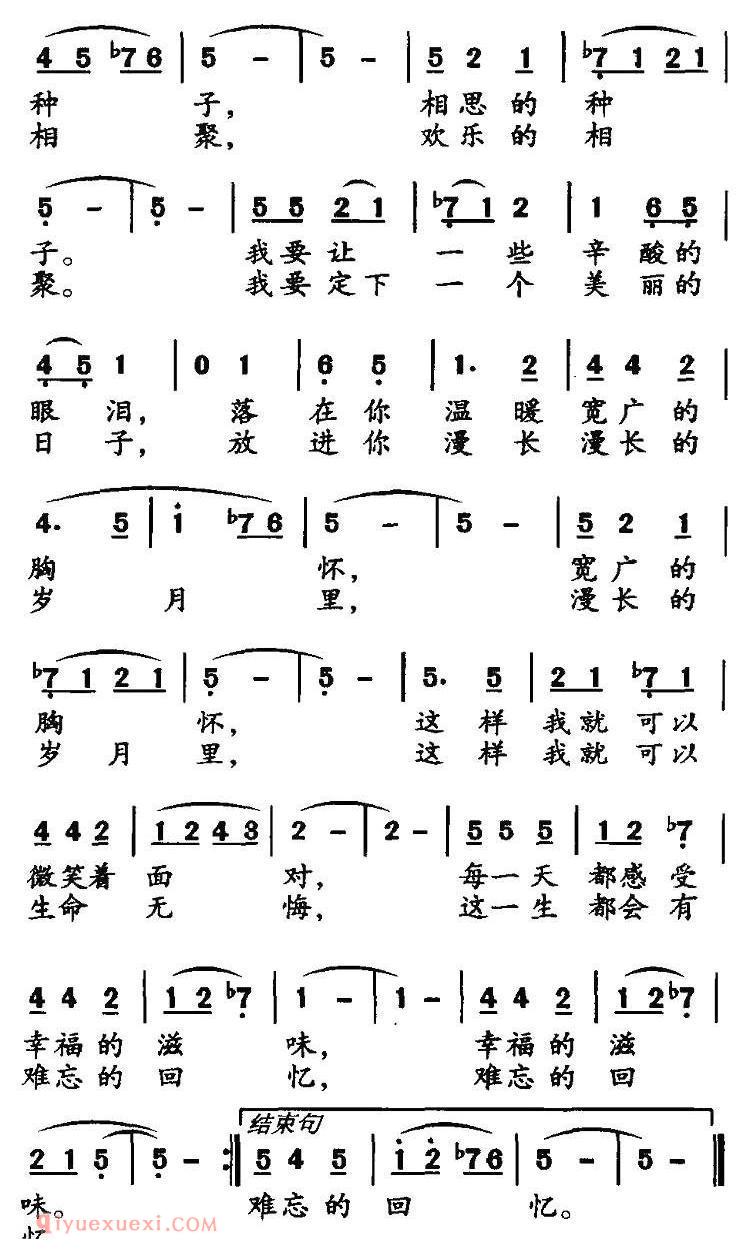 4 5 ♭7 6 | 5 - | 5 - | 5 2 1 | ♭7 1 2 1 |
种 子, 相思的 种
相 聚, 欢乐的 相
5 - | 5 - | 5 5 2 1 | ♭7 1 2 | 1 6 5 |
子。 我要让 一些 辛酸的
聚。 我要定下 一个 美丽的
4 5 1 | 0 1 | 6 5 | 1. 2 | 4 4 2 |
眼泪, 落 在你 温暖 宽广的
日子, 放 进你 漫长 漫长的
4. 5 | 1 ♭7 6 | 5 - | 5 - | 5 2 1 |
胸 怀, 宽广的
岁 月 里, 漫长的
♭7 1 2 1 | 5 - | 5 - | 5. 5 | 2 1 ♭7 1 |
胸 怀, 这样 我就可以
岁 月 里, 这样 我就可以
4 4 2 | 1 2 4 3 | 2 - | 2 - | 5 5 5 | 1 2 ♭7 |
微笑着 面 对, 每一天 都感受
生命 无 悔, 这一生 都会有
4 4 2 | 1 2 ♭7 | 1 - | 1 - | 4 4 2 | 1 2 ♭7 |
幸福的 滋 味, 幸福的 滋
难忘的 回 忆, 难忘的 回
结束句
2 1 5 | 5 - :‖ 5 4 5 | 1 2 ♭7 6 | 5 - | 5 - ‖
味。 难忘的 回 忆。
qiyuexuexi.com
忆